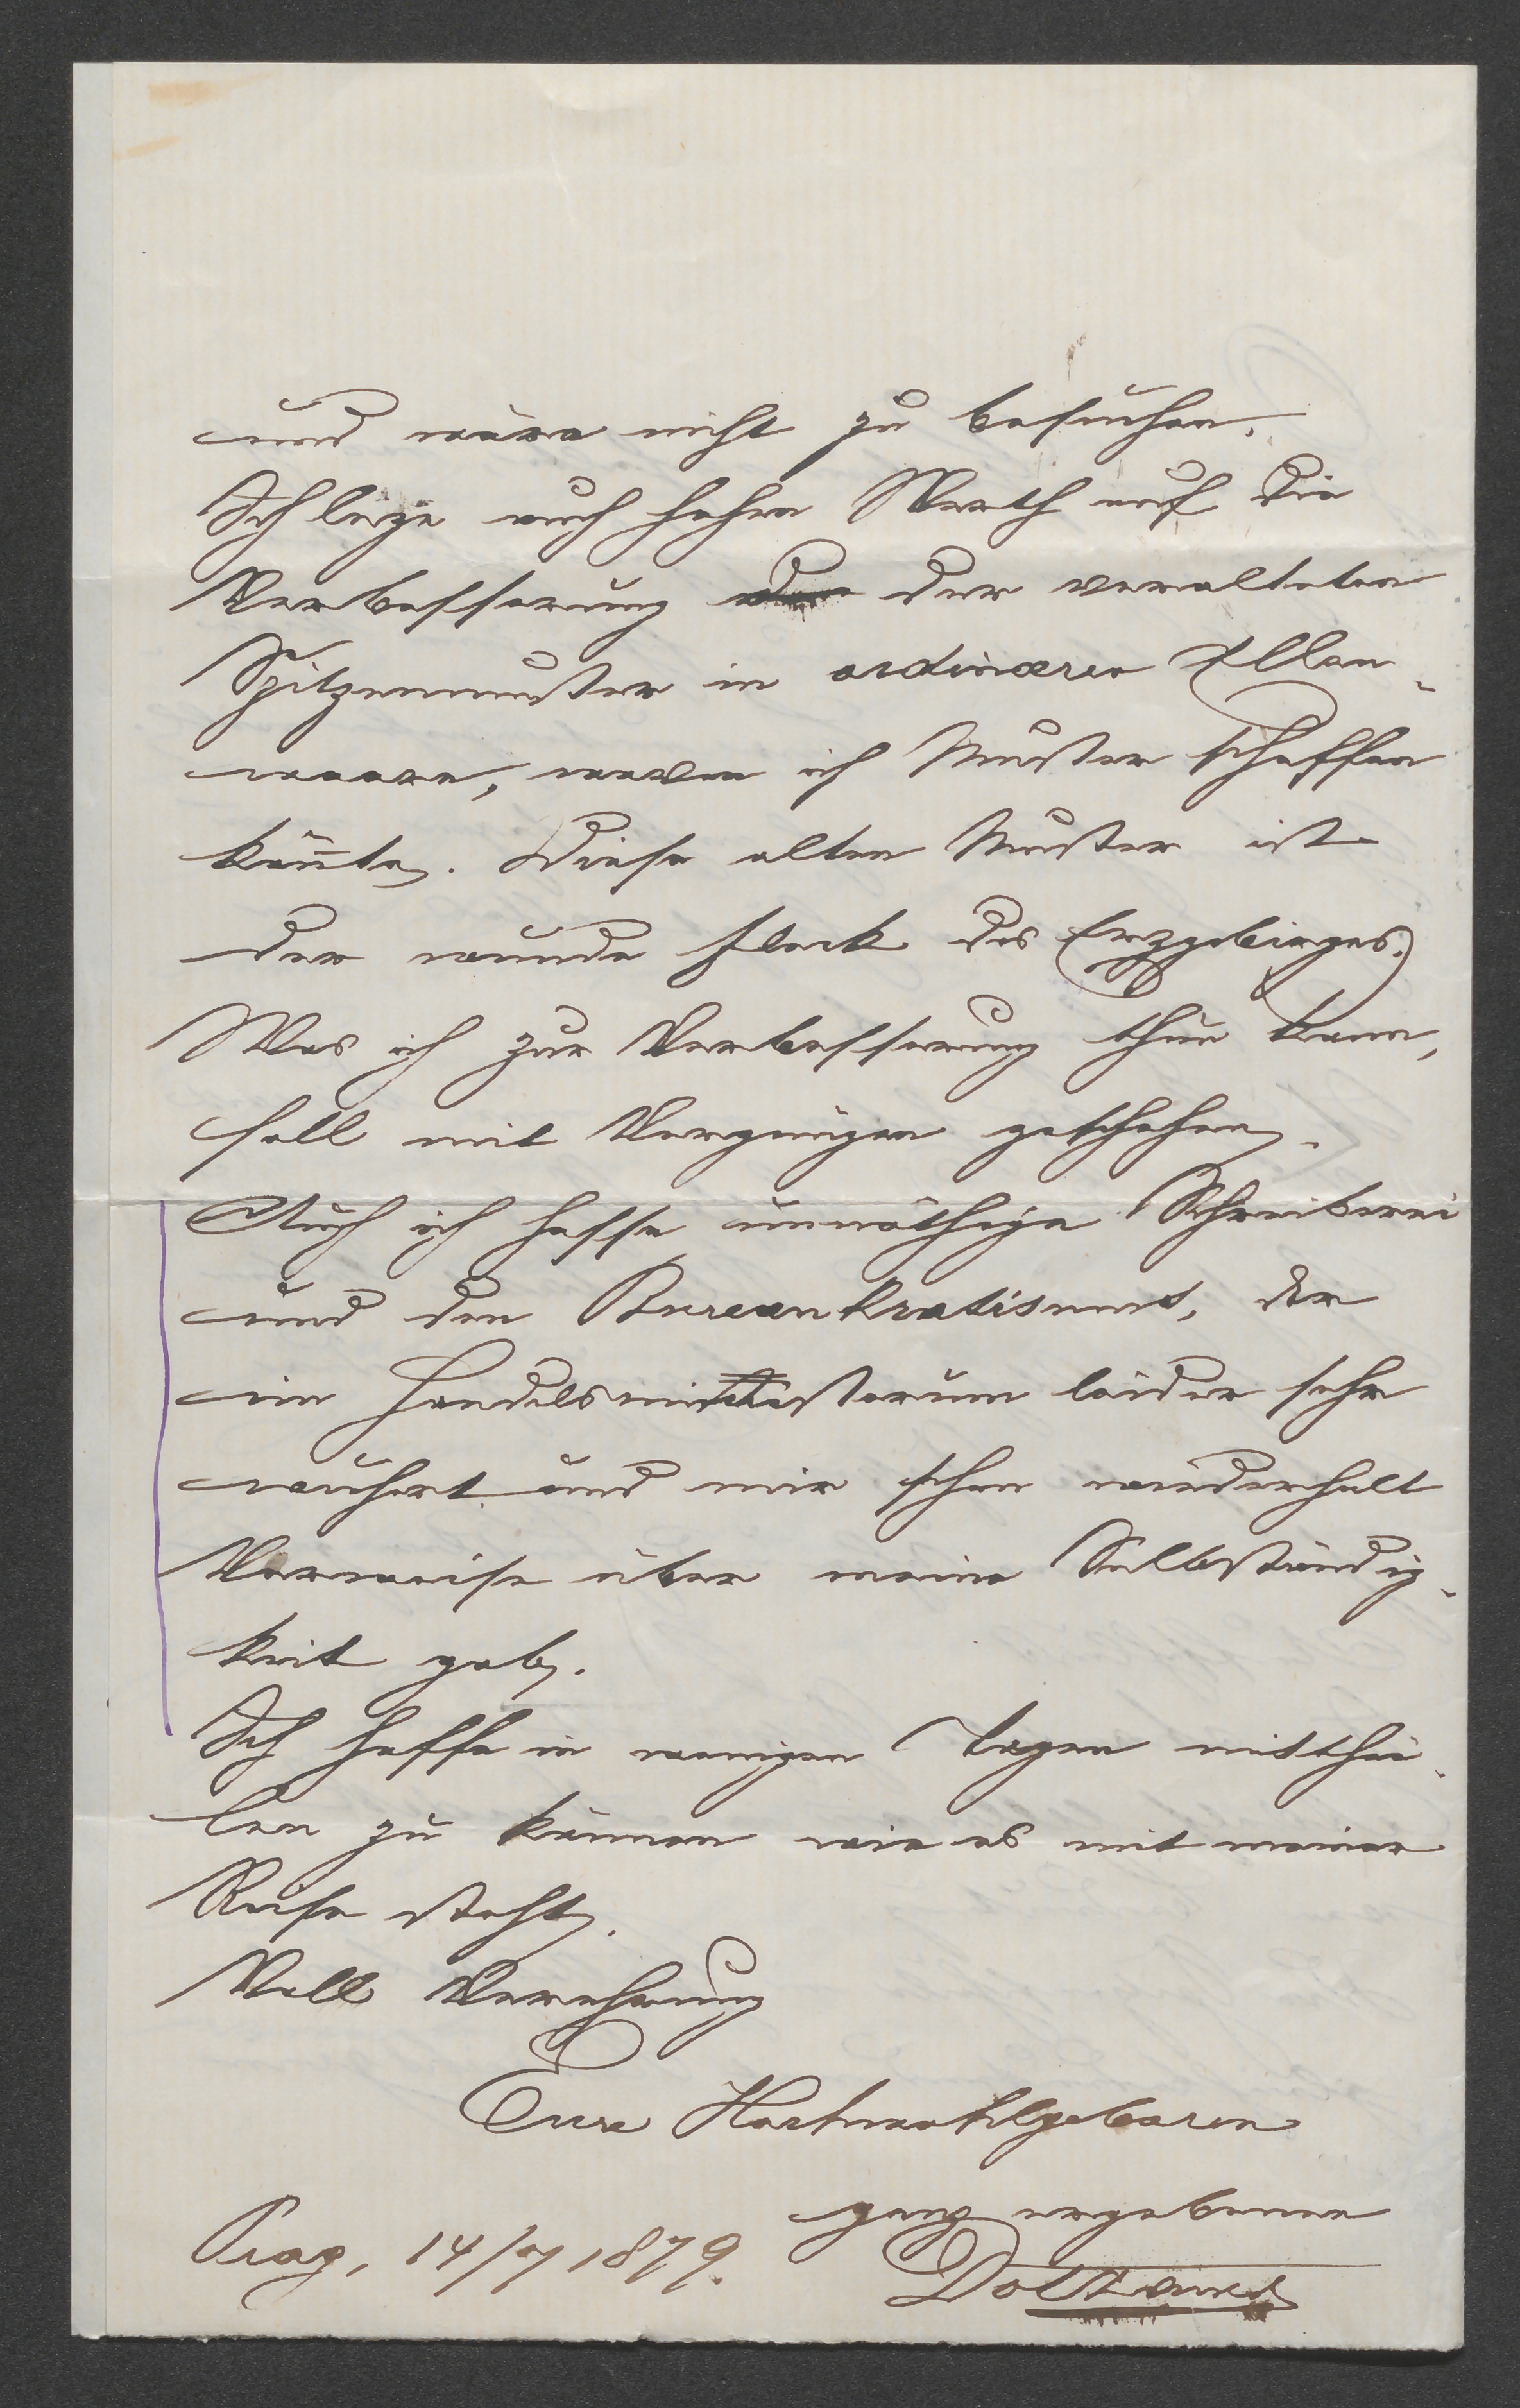 und wäre nicht zu besuchen.
Ich lege auch hohen Werth auf die
Verbesserung der der veralteten
Spitzenmuster in ordinärer Ellen-
waare, wozu ich Muster schaffen
köñte. Diese alten Muster ist
der wunde Fleck des Erzgebirges.
Was ich zur Verbesserung thun kann,
soll mit Vergnügen geschehen.
Auch ich hasse unnöthige Schreiberei
und den Bureaukratismus, der
im Handelsministerium leider sehr
wuchert und mir schon wiederholt
Verweise über meine Selbständig-
keit gab.
Ich hoffe in wenigen Tagen mitthei-
len zu können wie es mit meiner
Reise steht.
Voll Verehrung
Eure Hochwohlgeboren
ganz ergebener
Prag, 14/7 1879.
Dotzauer